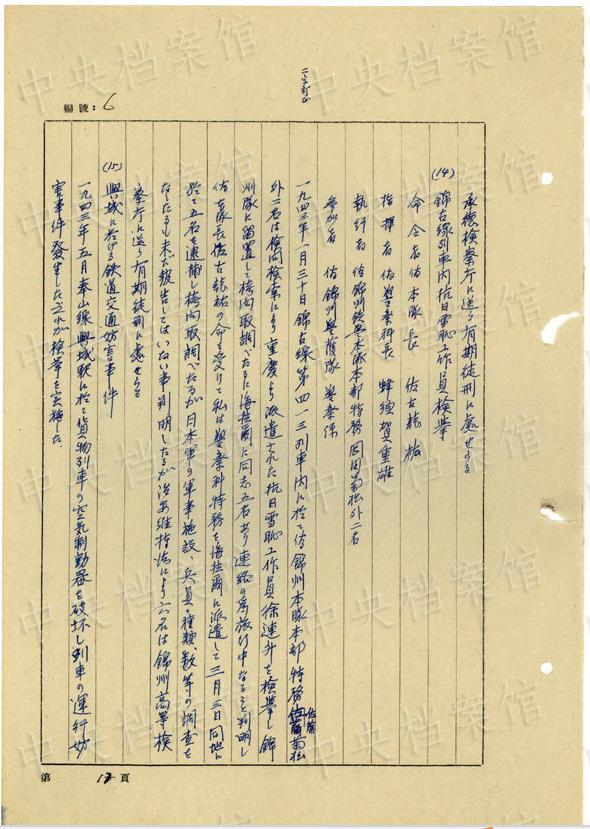 編號：6
二字訂正
承德検察庁に送り有期徒刑に處せらる
(14) 錦古線列車内抗日雪恥工作員検挙
命令者 佐本隊長 佐古龍祐
指揮者 佐警務科長 蜂須賀重雄
執行者 佐錦州鉄警本隊本部特務 岡田菊松外二名
参加者 佐錦州警護隊 警務係
一九四三年一月三十日錦古線第四一三列車内に於て佐錦州本隊本部特務佐藤菊松
外二名は検問検索により重慶より派遣された抗日雪恥工作員徐連升を検挙し錦
州隊に留置して拷問取調べたるに海拉爾に同志五名あり連絡の為旅行中なること判明し
佐古隊長佐古龍祐の命を受けて私は警務科特務を海拉爾に派遣して三月三日同地に
於て五名を逮捕し拷問取調べたるが日本軍の軍事施設、兵員の種類、数等の調査を
なしたるも未だ報告してはいない事判明したるが治安維持法により六名は錦州高等検
察庁に送り有期徒刑に處せらる
(15) 興城に於ける鉄道交通妨害事件
一九四三年五月奉山線興城駅に於て貨物列車の空気制動器を破坏し列車の運行妨
害事件発生したこれが検挙を実施した
第 17 頁